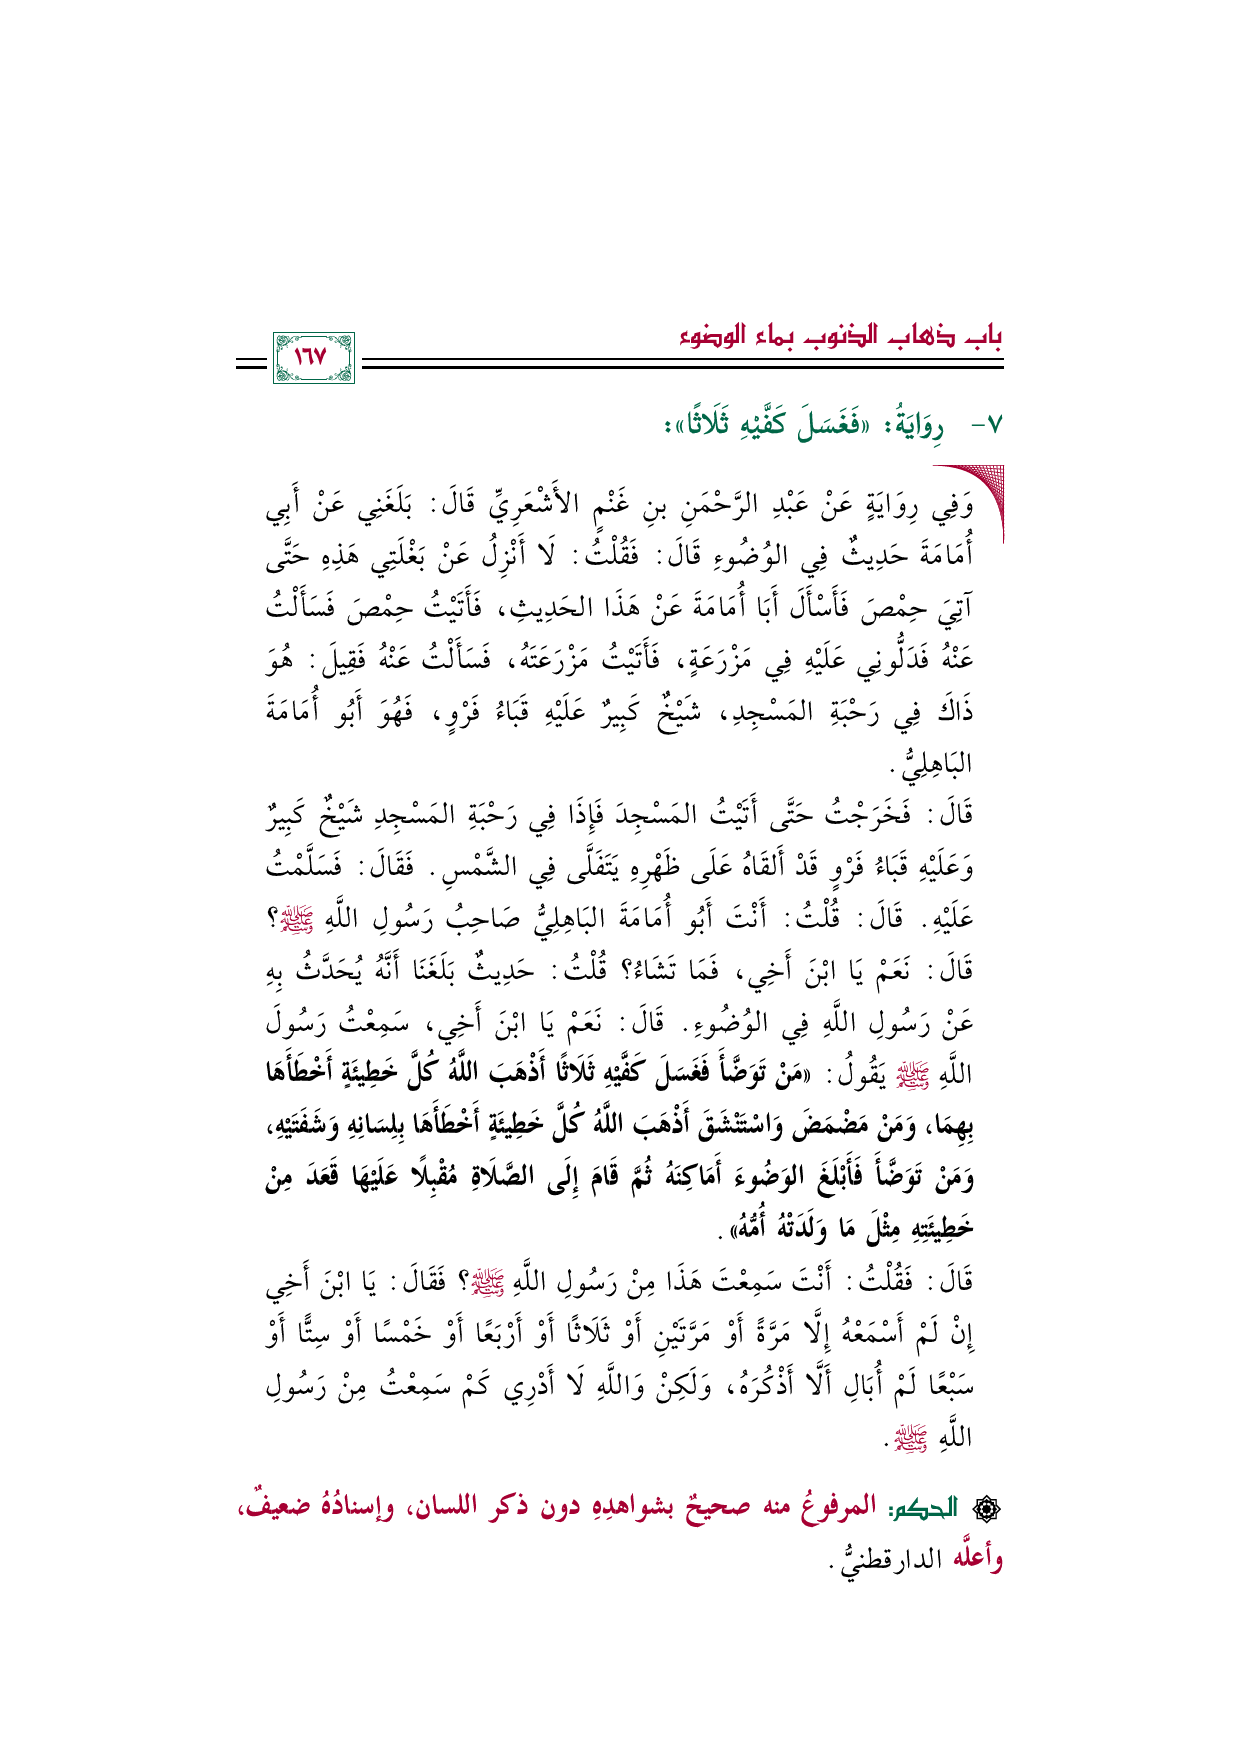 باب ذهاب الذنوب بماء الوضوء
١٦٧
٧- رِوَايَةُ: «فَغَسَلَ كَفَّيْهِ ثَلَاثًا»:
وَفِي رِوَايَةٍ عَنْ عَبْدِ الرَّحْمَنِ بنِ غَنْمٍ الأَشْعَرِيِّ قَالَ: بَلَغَنِي عَنْ أَبِي
أُمَامَةَ حَدِيثٌ فِي الوُضُوءِ قَالَ: فَقُلْتُ: لَا أَنْزِلُ عَنْ بَغْلَتِي هَذِهِ حَتَّى
آتِيَ حِمْصَ فَأَسْأَلَ أَبَا أُمَامَةَ عَنْ هَذَا الحَدِيثِ، فَأَتَيْتُ حِمْصَ فَسَأَلْتُ
عَنْهُ فَدَلُّونِي عَلَيْهِ فِي مَزْرَعَةٍ، فَأَتَيْتُ مَزْرَعَتَهُ، فَسَأَلْتُ عَنْهُ فَقِيلَ: هُوَ
ذَاكَ فِي رَحْبَةِ المَسْجِدِ، شَيْخٌ كَبِيرٌ عَلَيْهِ قَبَاءُ فَرْوٍ، فَهُوَ أَبُو أُمَامَةَ
البَاهِلِيُّ.
قَالَ: فَخَرَجْتُ حَتَّى أَتَيْتُ المَسْجِدَ فَإِذَا فِي رَحْبَةِ المَسْجِدِ شَيْخٌ كَبِيرٌ
وَعَلَيْهِ قَبَاءُ فَرْوٍ قَدْ أَلقَاهُ عَلَى ظَهْرِهِ يَتَفَلَّى فِي الشَّمْسِ. فَقَالَ: فَسَلَّمْتُ
عَلَيْهِ. قَالَ: قُلْتُ: أَنْتَ أَبُو أُمَامَةَ البَاهِلِيُّ صَاحِبُ رَسُولِ اللَّهِ ﷺ؟
قَالَ: نَعَمْ يَا ابْنَ أَخِي، فَمَا تَشَاءُ؟ قُلْتُ: حَدِيثٌ بَلَغَنَا أَنَّهُ يُحَدَّثُ بِهِ
عَنْ رَسُولِ اللَّهِ فِي الوُضُوءِ. قَالَ: نَعَمْ يَا ابْنَ أَخِي، سَمِعْتُ رَسُولَ
اللَّهِ ﷺ يَقُولُ: «مَنْ تَوَضَّأَ فَغَسَلَ كَفَّيْهِ ثَلَاثًا أَذْهَبَ اللَّهُ كُلَّ خَطِيئَةٍ أَخْطَأَهَا
بِهِمَا، وَمَنْ مَضْمَضَ وَاسْتَنْشَقَ أَذْهَبَ اللَّهُ كُلَّ خَطِيئَةٍ أَخْطَأَهَا بِلِسَانِهِ وَشَفَتَيْهِ،
وَمَنْ تَوَضَّأَ فَأَبْلَغَ الوَضُوءَ أَمَاكِنَهُ ثُمَّ قَامَ إِلَى الصَّلَاةِ مُقْبِلًا عَلَيْهَا قَعَدَ مِنْ
خَطِيئَتِهِ مِثْلَ مَا وَلَدَتْهُ أُمُّهُ».
قَالَ: فَقُلْتُ: أَنْتَ سَمِعْتَ هَذَا مِنْ رَسُولِ اللَّهِ ﷺ؟ فَقَالَ: يَا ابْنَ أَخِي
إِنْ لَمْ أَسْمَعْهُ إِلَّا مَرَّةً أَوْ مَرَّتَيْنِ أَوْ ثَلَاثًا أَوْ أَرْبَعًا أَوْ خَمْسًا أَوْ سِتًّا أَوْ
سَبْعًا لَمْ أُبَالِ أَلَّا أَذْكُرَهُ، وَلَكِنْ وَاللَّهِ لَا أَدْرِي كَمْ سَمِعْتُ مِنْ رَسُولِ
اللَّهِ ﷺ.
الحكم: المرفوعُ منه صحيحٌ بشواهدِهِ دون ذكر اللسان، وإسنادُهُ ضعيفٌ،
وأعلَّه الدارقطنيُّ.